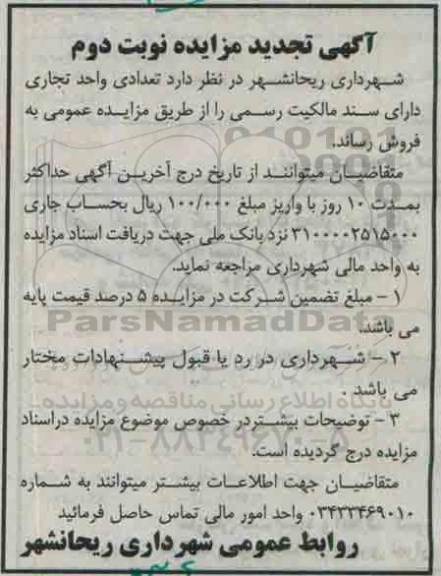 آگهی تجدید مزایده نوبت دوم
شهرداری ریحانشهر در نظر دارد تعدادی واحد تجاری
دارای سند مالکیت رسمی را از طریق مزایده عمومی به
فروش رساند.
متقاضیان میتوانند از تاریخ درج آخرین آگهی حداکثر
بمدت ۱۰ روز با واریز مبلغ ۱۰۰/۰۰۰ ریال بحساب جاری
۳۱۰۰۰۰۲۵۱۵۰۰۰ نزد بانک ملی جهت دریافت اسناد مزایده
به واحد مالی شهرداری مراجعه نماید.
۱ – مبلغ تضمین شرکت در مزایده ۵ درصد قیمت پایه
می باشد.
ParsNamadData
۲ – شهرداری در رد یا قبول پیشنهادات مختار
می باشد .
پایگاه اطلاع رسانی مناقصه و مزایده
۳ – توضیحات بیشتردر خصوص موضوع مزایده دراسناد
۰۲۱–۸۸۳۴۹۶۷۰–۵
مزایده درج گردیده است.
متقاضیان جهت اطلاعات بیشتر میتوانند به شماره
۰۳۴۳۳۴۶۹۰۱۰ واحد امور مالی تماس حاصل فرمائید
روابط عمومی شهرداری ریحانشهر